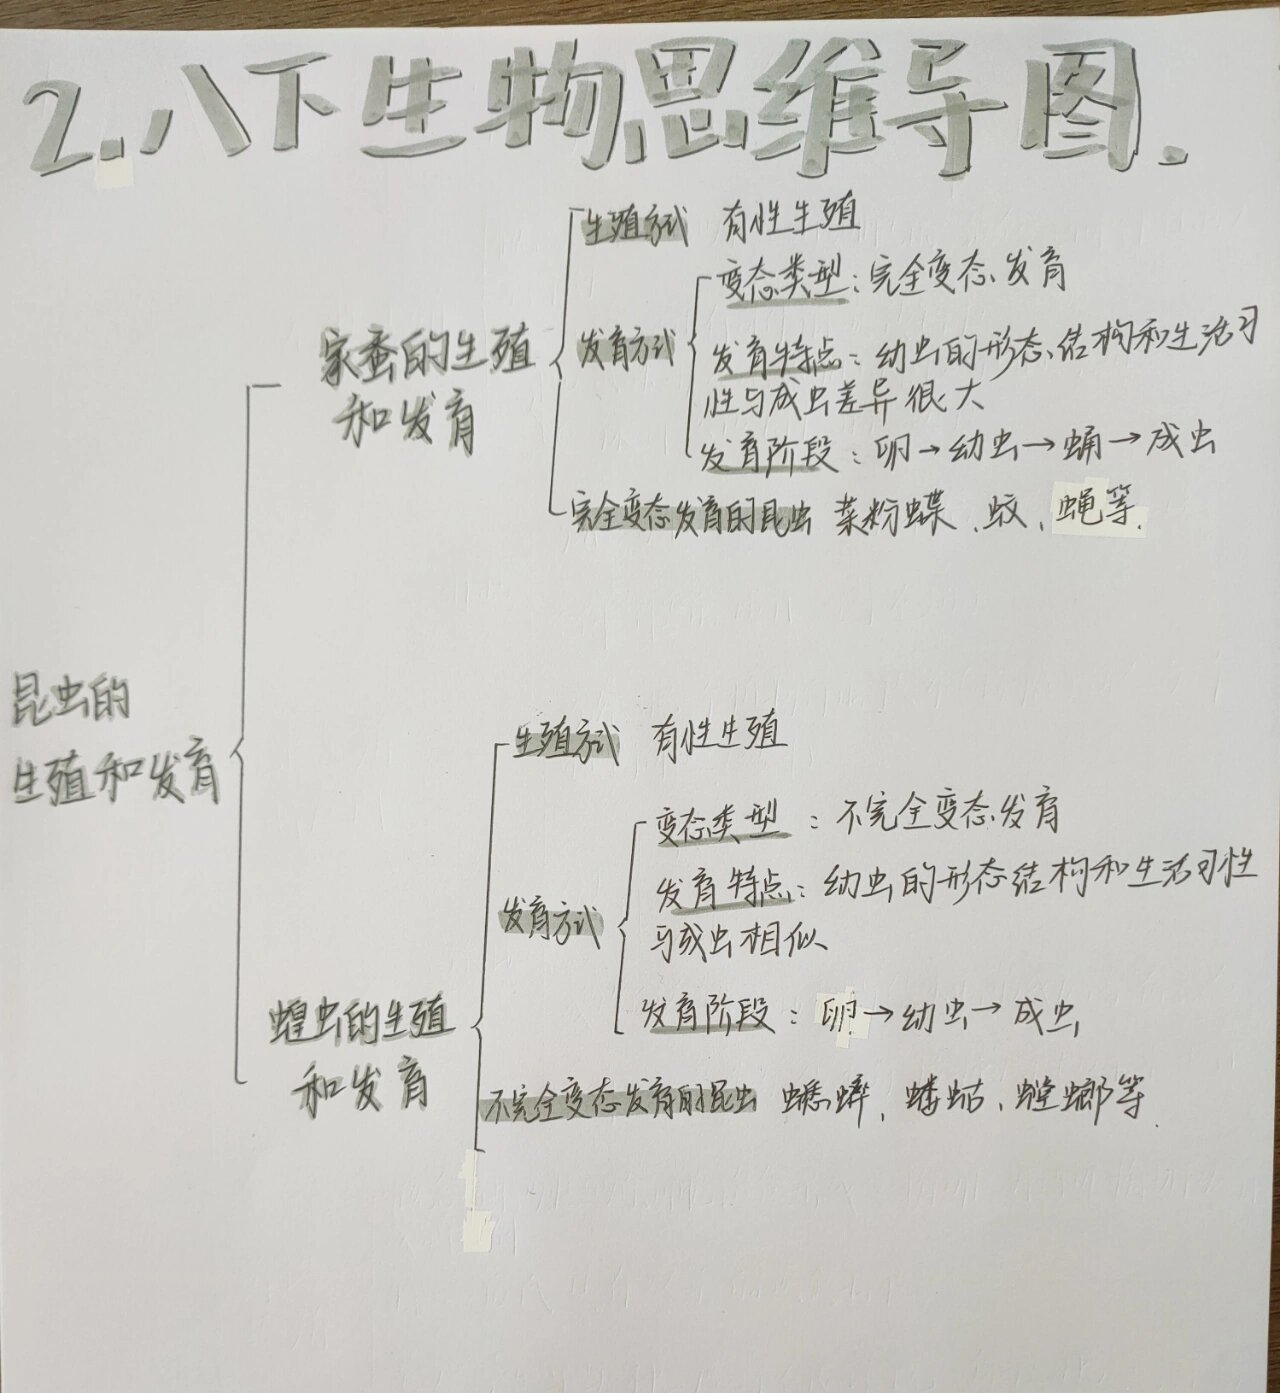 2.八下生物思维导图.
生殖方式 有性生殖
变态类型:完全变态发育
家蚕的生殖
和发育
发育方式
发育特点:幼虫的形态、结构和生活习
性与成虫差异很大
发育阶段:卵→幼虫→蛹→成虫
完全变态发育的昆虫 菜粉蝶、蚊、蝇等.
昆虫的
生殖和发育
生殖方式 有性生殖
变态类型:不完全变态发育
发育方式
发育特点:幼虫的形态结构和生活习性
与成虫相似
发育阶段:卵→幼虫→成虫
蝗虫的生殖
和发育
不完全变态发育的昆虫 蟋蟀、蝼蛄、螳螂等.